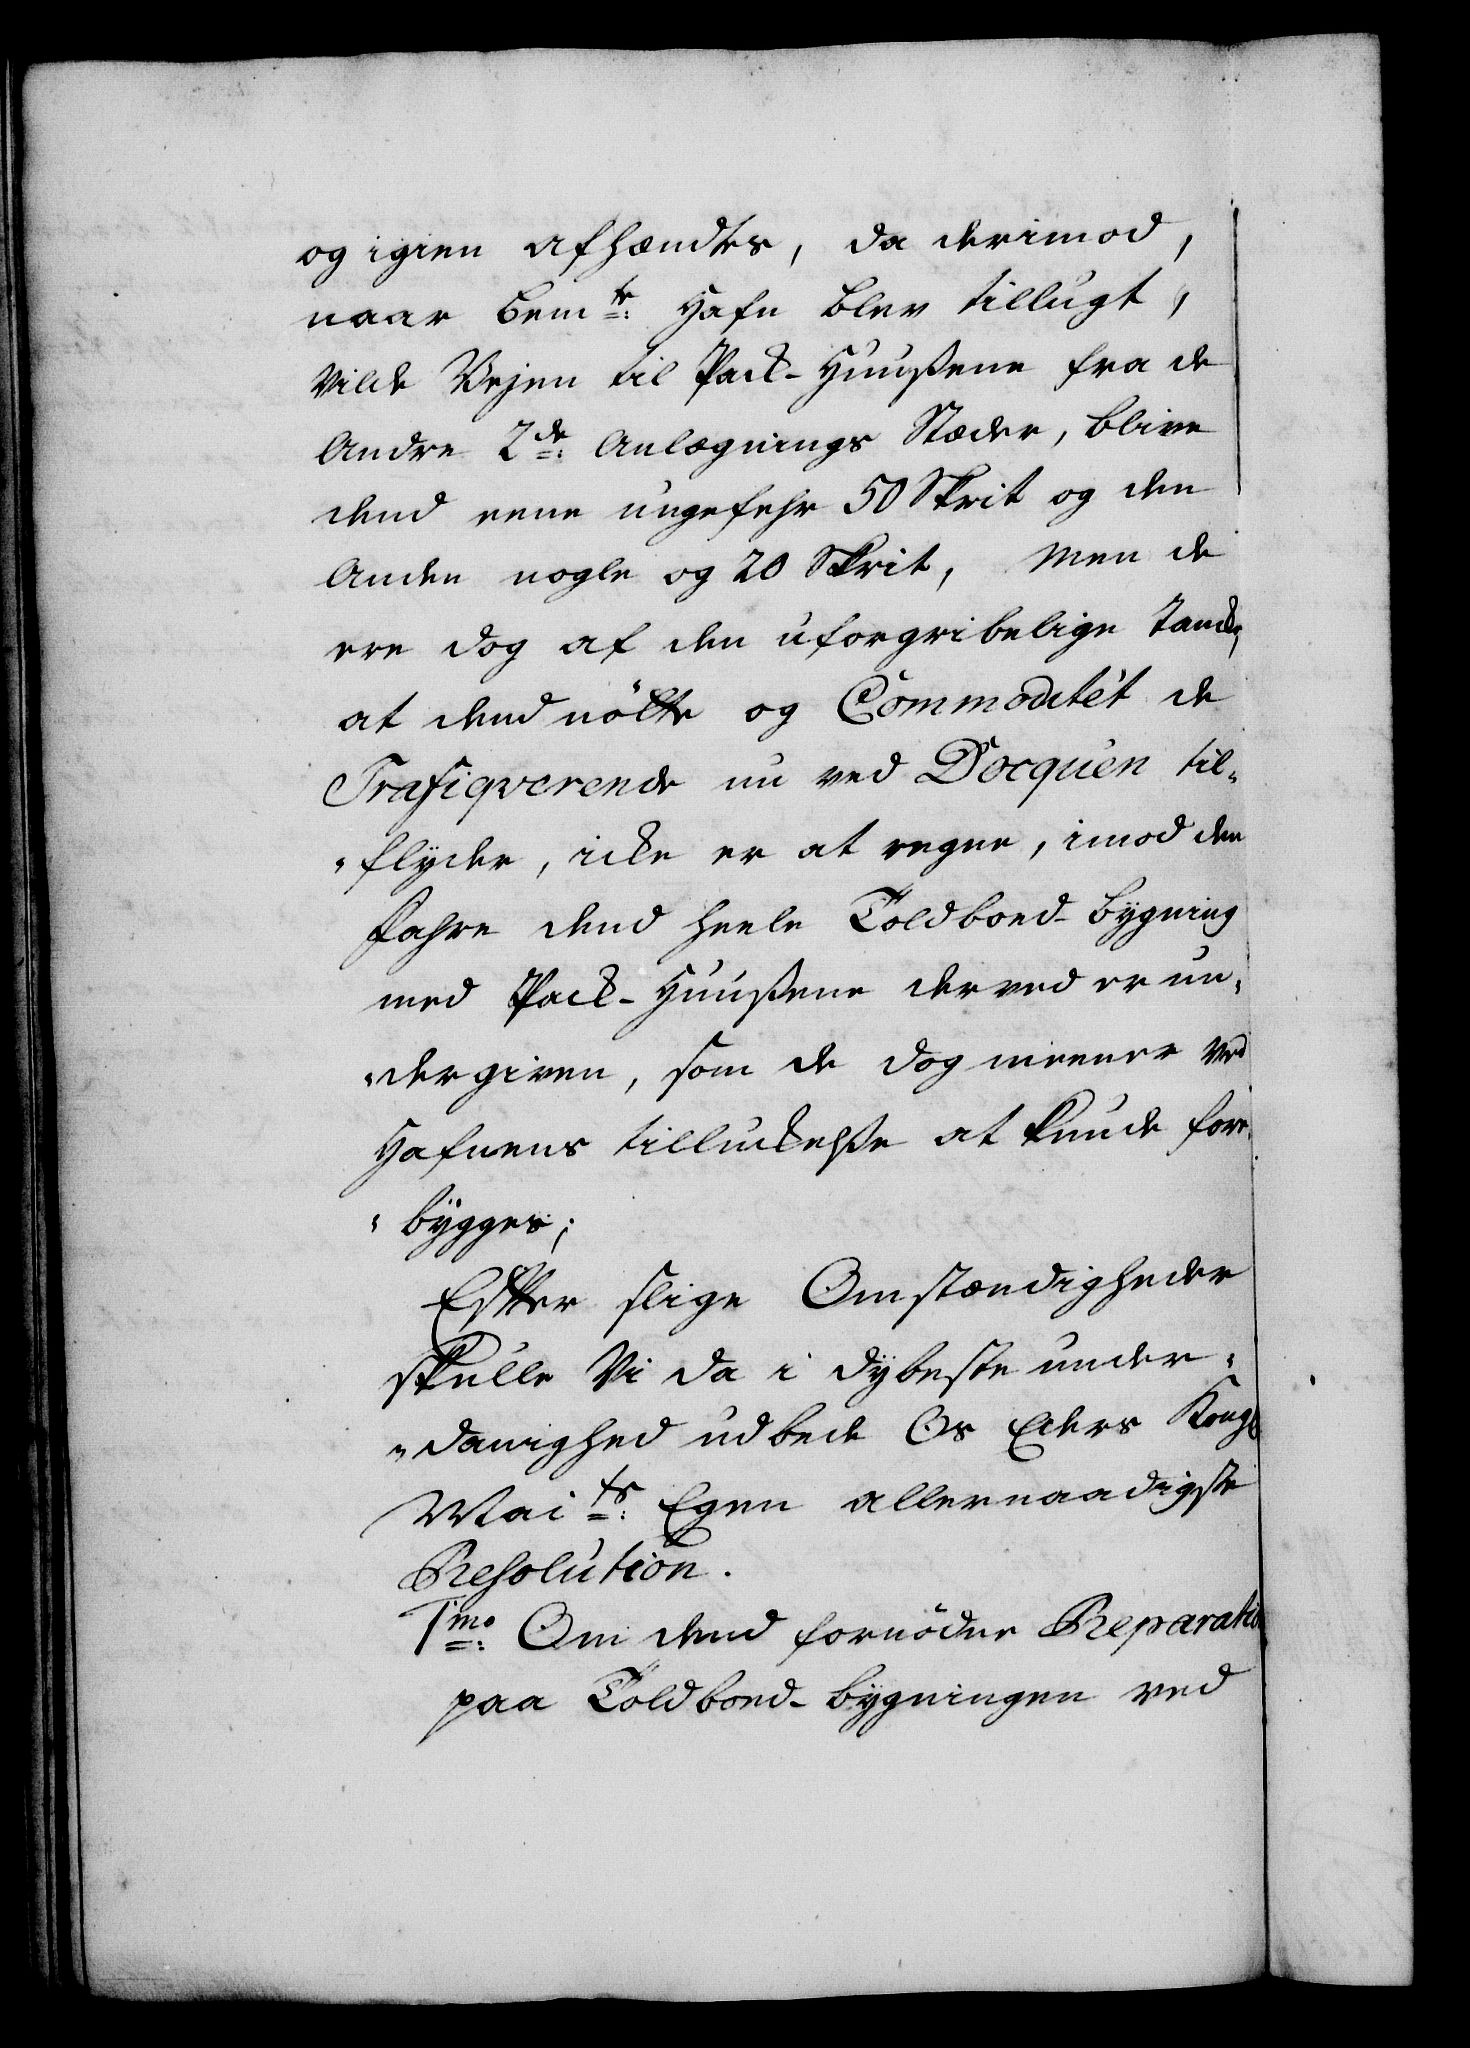 og igien afhændtes, da derimod,
naar bem.te Hafn blev tillugt,
vilde Vejen til Pack-Huußene fra de
Andre 2de Anlægnings Stæder, blive
dend eene ungefehr 50 Skrit og den
Anden nogle og 20 Skrit, Men de
ere dog af den uforgribelige Tancke,
at dend nötte og Commoditét de
Trafiqverende nu ved Docquen til-
flyder, icke er at regne, imod den
fahre dend heele Toldboed-bygning
med Pack-Huußene derved er un-
dergiven, som de dog meener ved
Hafnens tilluckelße at kunde fore-
bygges;
Efter slige Omstændigheder
skulle Vi da i dybeste under-
danighed udbede Os Eders Kongl
Mai.ts Egen allernaadigste
Resolution.
1mo Om dend fornödne Reparatio
paa Toldboed-bygningen ved